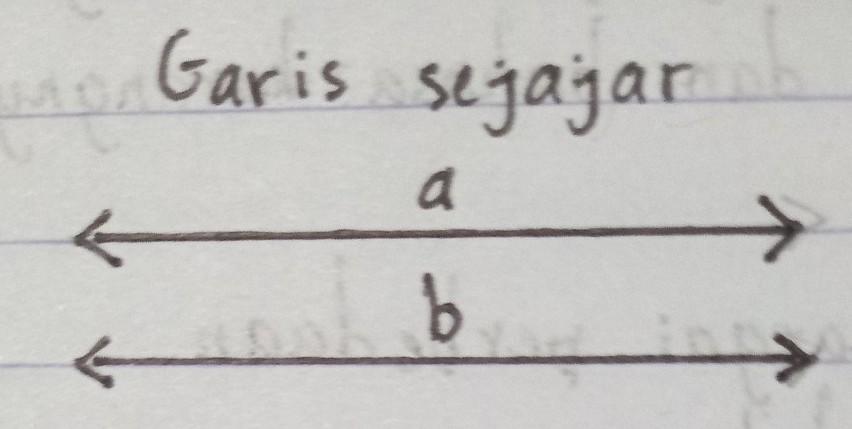 Garis sejajar
a
b